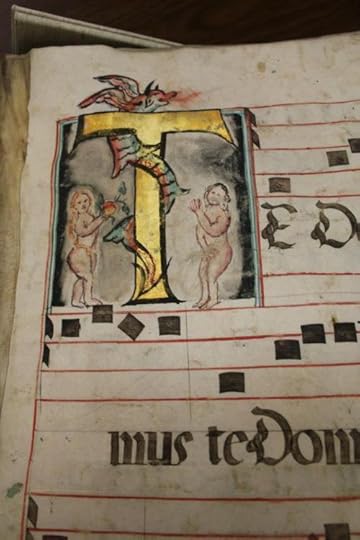 TE De
mus te Dom